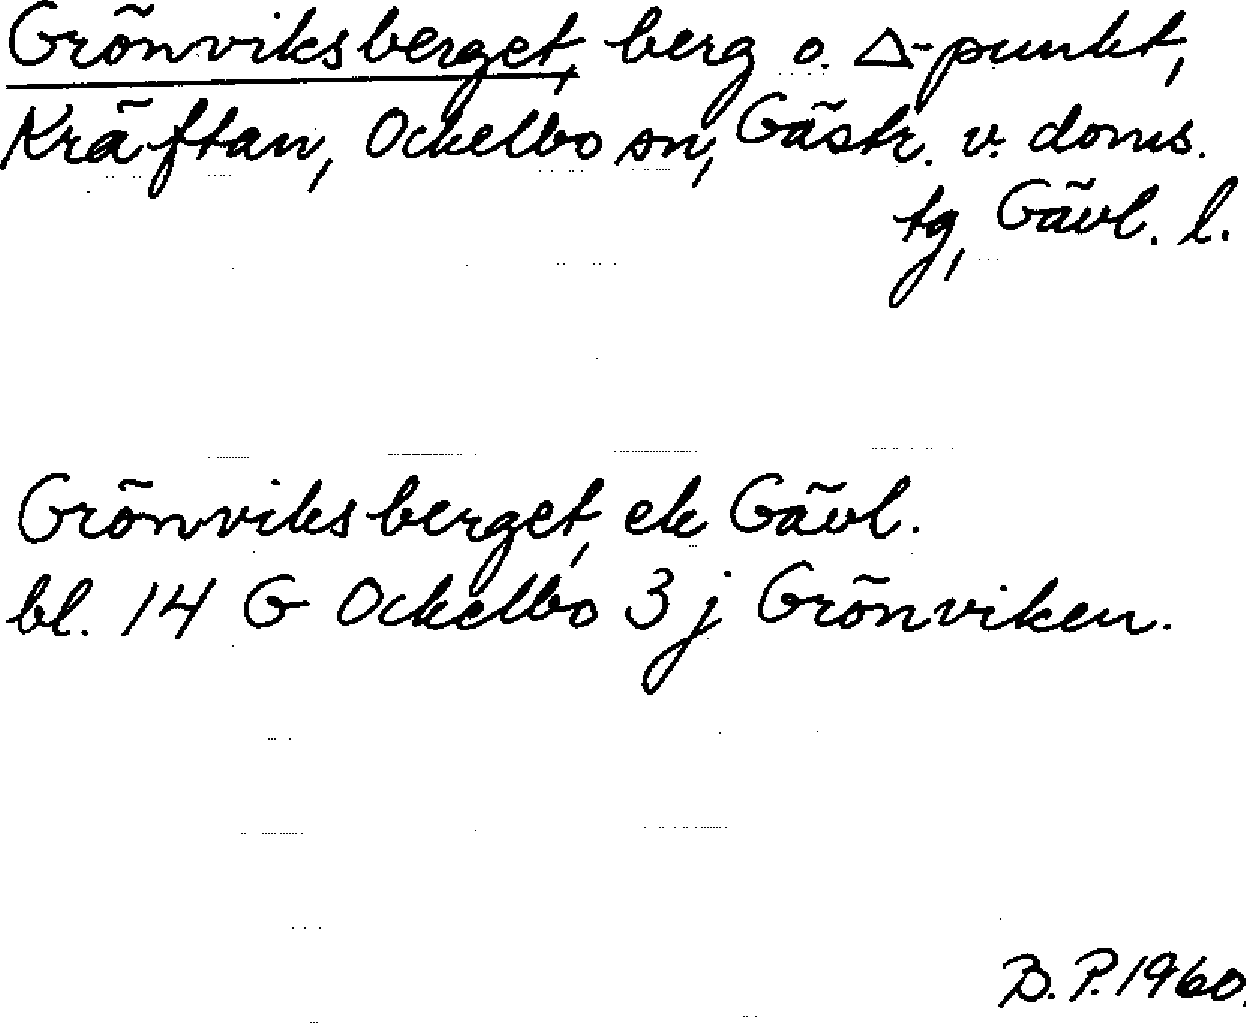 Grönviksberget, berg o. △-punkt,
Kräftan, Ockelbo sn, Gästr. v. doms.
tg, Gävl. l.
Grönviksberget, ek Gävl.
bl. 14 G Ockelbo 3 j Grönviken.
B. P. 1960.